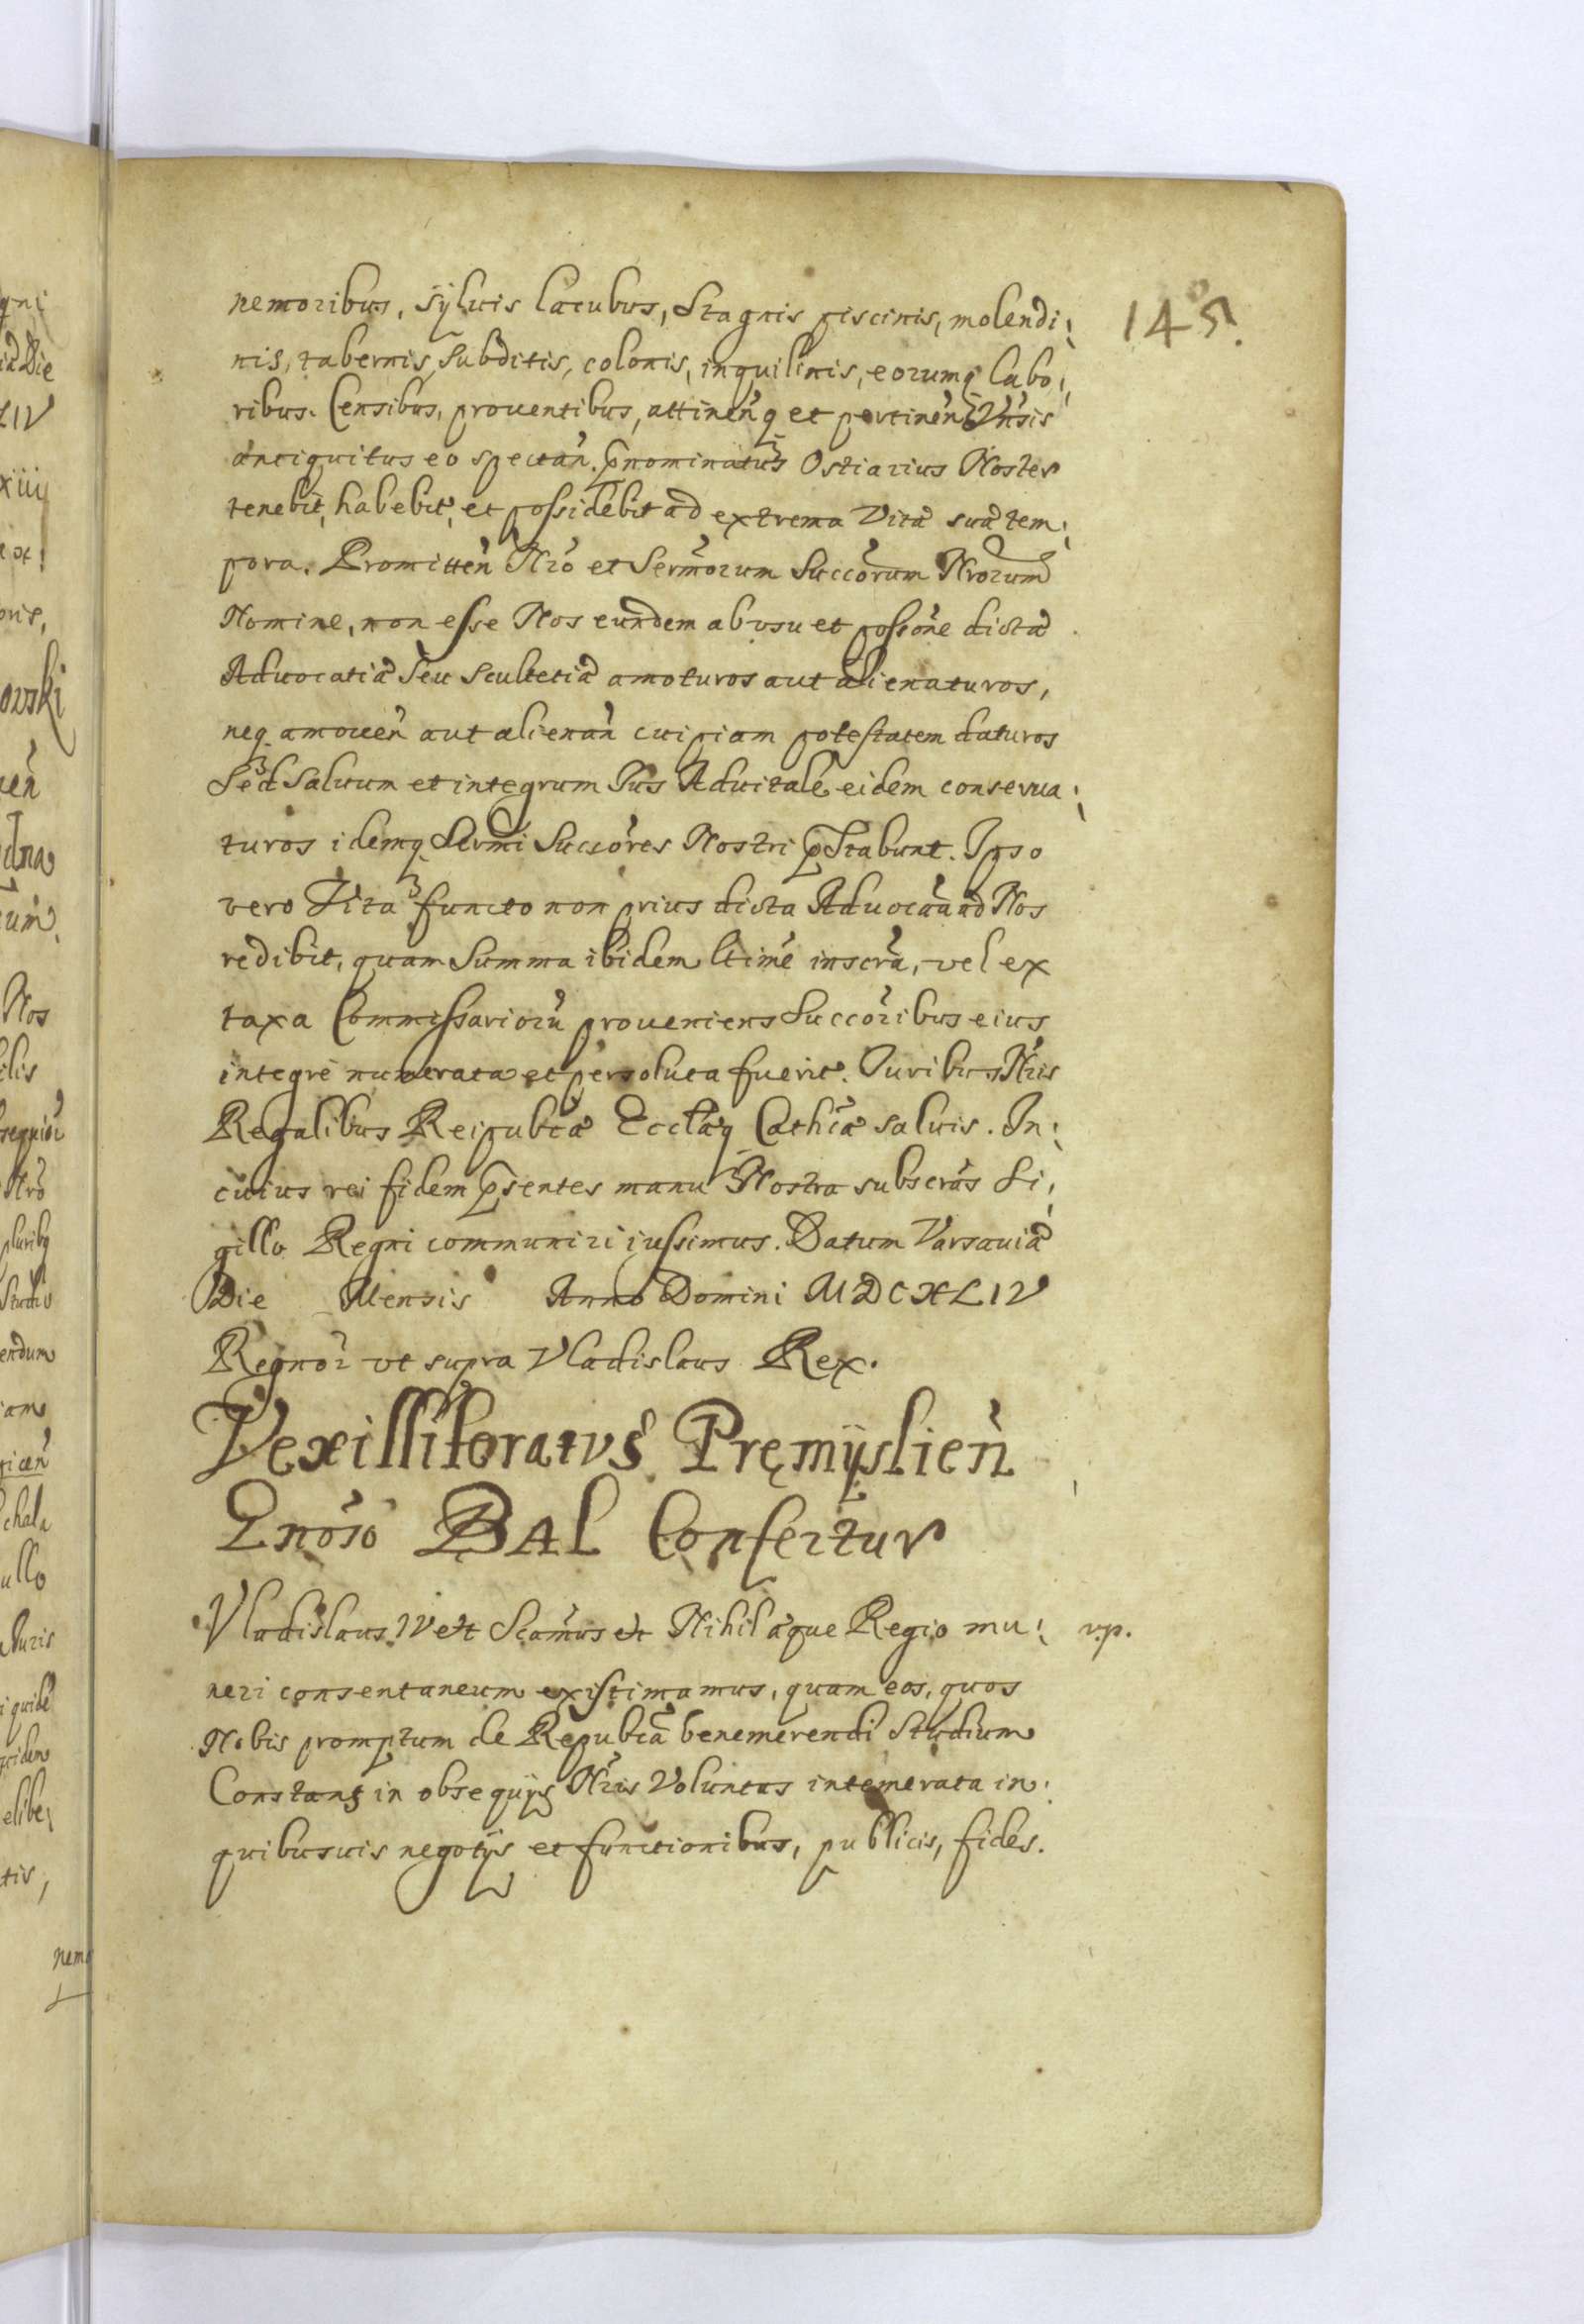 145.
nemoribus, syluis lacubus, Stagnis piscinis, molendi:
nis, tabernis, subditis, colonis, inquilinis, eorumq labo:
ribus. Censibus, prouentibus, attinen̄q et pertinen̄ Vn̄sis
antiquitus eo spectan̄. p̄nominatus Ostiarius Noster
tenebit, habebit, et possidebit ad extrema Vitæ suæ tem:
pora. Promitten̄ Nr̄o et Serm̄orum Succōrum Nr̄orum
Nomine, non esse Nos eundem ab vsu et possōne dictæ
Aduocatiæ seu scultetiæ amoturos aut alienaturos,
neq amouen̄ aut alienan̄ cuipiam potestatem daturos
Sed saluum et integrum Ius Aduitale eidem conserua:
turos idemq Serm̄i Succōres Nostri p̄stabunt. Ipso
vero Vita functo non prius dicta Aduocāa ad Nos
redibit, quam Summa ibidem ltime inscrā, vel ex
taxa Commissariorū proueniens Succōribus eius
integre numerata et persoluta fuerit. Iuribus Nr̄is
Regalibus Reipubcæ Ecclæq Cathcæ saluis. In:
cuius rei fidem p̄sentes manu Nostra subscrās Si:
gillo Regni communiri iussimus. Datum Varsauiæ
Die Mensis Anno Domini MDCXLIV
Regnor̄ vt supra Vladislaus Rex.
Vexilliferatvs Pręmÿslien̄
Gnōso BAL Confertur
Vladislaus IV etc Scām̄us etc Nihil æque Regio mu: v.p.
neri consentaneum existimamus, quam eos, quos
Nobis promptum de Repubcā benemerendi Studium
Constans in obsequÿs Nr̄is Voluntas intemerata in:
quibusuis negotÿs et functionibus, publicis, fides.